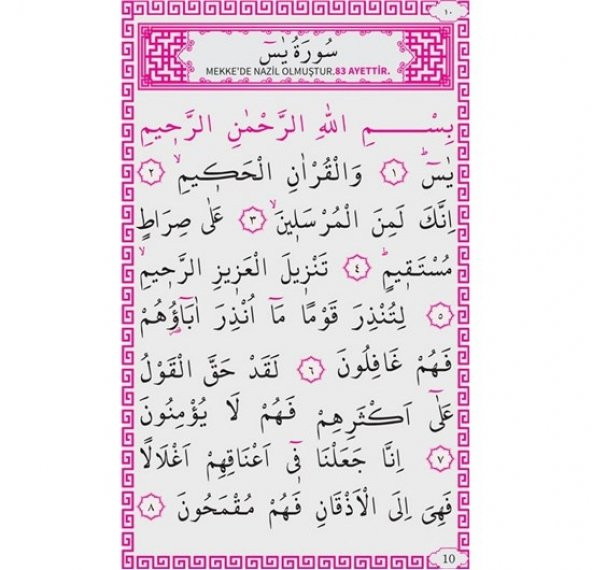 ١٠
سُورَةُ يٰسٓ
MEKKE'DE NAZİL OLMUŞTUR.83 AYETTİR.
بِسْمِ اللهِ الرَّحْمٰنِ الرَّحٖيمِ
يٰسٓ ۚ ﴿١﴾ وَالْقُرْاٰنِ الْحَكٖيمِ ۙ ﴿٢﴾
اِنَّكَ لَمِنَ الْمُرْسَلٖينَ ۙ ﴿٣﴾ عَلٰى صِرَاطٍ
مُسْتَقٖيمٍ ۜ ﴿٤﴾ تَنْزٖيلَ الْعَزٖيزِ الرَّحٖيمِ ۙ
﴿٥﴾ لِتُنْذِرَ قَوْمًا مَٓا اُنْذِرَ اٰبَٓاؤُ۬هُمْ
فَهُمْ غَافِلُونَ ﴿٦﴾ لَقَدْ حَقَّ الْقَوْلُ
عَلٰٓى اَكْثَرِهِمْ فَهُمْ لَا يُؤْمِنُونَ
﴿٧﴾ اِنَّا جَعَلْنَا فٖٓي اَعْنَاقِهِمْ اَغْلَالًا
فَهِيَ اِلَى الْاَذْقَانِ فَهُمْ مُقْمَحُونَ ﴿٨﴾
10